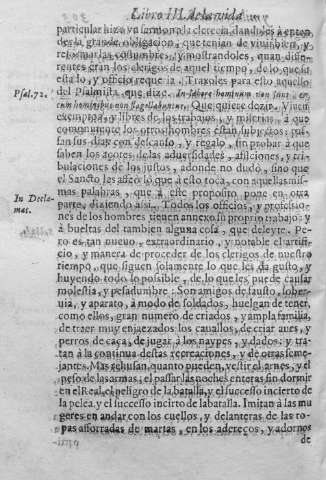 Libro III. de la vida
particular hizo vn sermon a la clerezia, dandoles à enten
der la grande obligacion, que tenian de viuir bien, y
reformar las costumbres, y mostrandoles, quan dife-
rentes eran los clerigos de aquel tiempo, de lo que su
estado, y officio requeria. Traxoles para esto aquello
Psal. 72.
del Psalmista, que dize. In labore hominum non sunt, et
cum hominibus non flagellabuntur. Que quiere dezir. Viuen
exemptos, y libres de los trabajos, y miserias, à que
comunmente los otros hombres estan subiectos: pas-
san sus dias con descanso, y regalo, sin probar à que
saben los açotes de las aduersidades, aflicciones, y tri-
bulaciones de los justos, adonde no dudo, sino que
el Sancto les afeò lo que à esto toca, con aquellas mis-
In Decla-
mas.
mas palabras, que à este proposito pone en otra
parte, diziendo assi. Todos los officios, y professio-
nes de los hombres tienen annexo su proprio trabajo: y
à bueltas del tambien alguna cosa, que deleyte. Pe-
ro es tan nueuo, extraordinario, y notable el artifi-
cio, y manera de proceder de los clerigos de nuestro
tiempo, que siguen solamente lo que les da gusto, y
huyendo todo lo possible, de lo que les puede causar
molestia, y pesadumbre: Son amigos de fausto, sober-
uia, y aparato, à modo de soldados, huelgan de tener,
como ellos, gran numero de criados, y ampla familia,
de traer muy enjaezados los cauallos, de criar aues, y
perros de caça, de jugar à los naypes, y dados: y tra-
tan à la continua destas recreaciones, y de otras seme-
jantes. Mas rehusan, quanto pueden, vestir el arnes, y el
peso de las armas, el passar las noches enteras sin dormir
en el Real, el peligro de la batalla, y el successo incierto de
la pelea, y el successo incierto de la batalla. Imitan à las mu
geres en andar con los cuellos, y delanteras de las ro-
pas afforradas de martas, en los adereços, y adornos
de